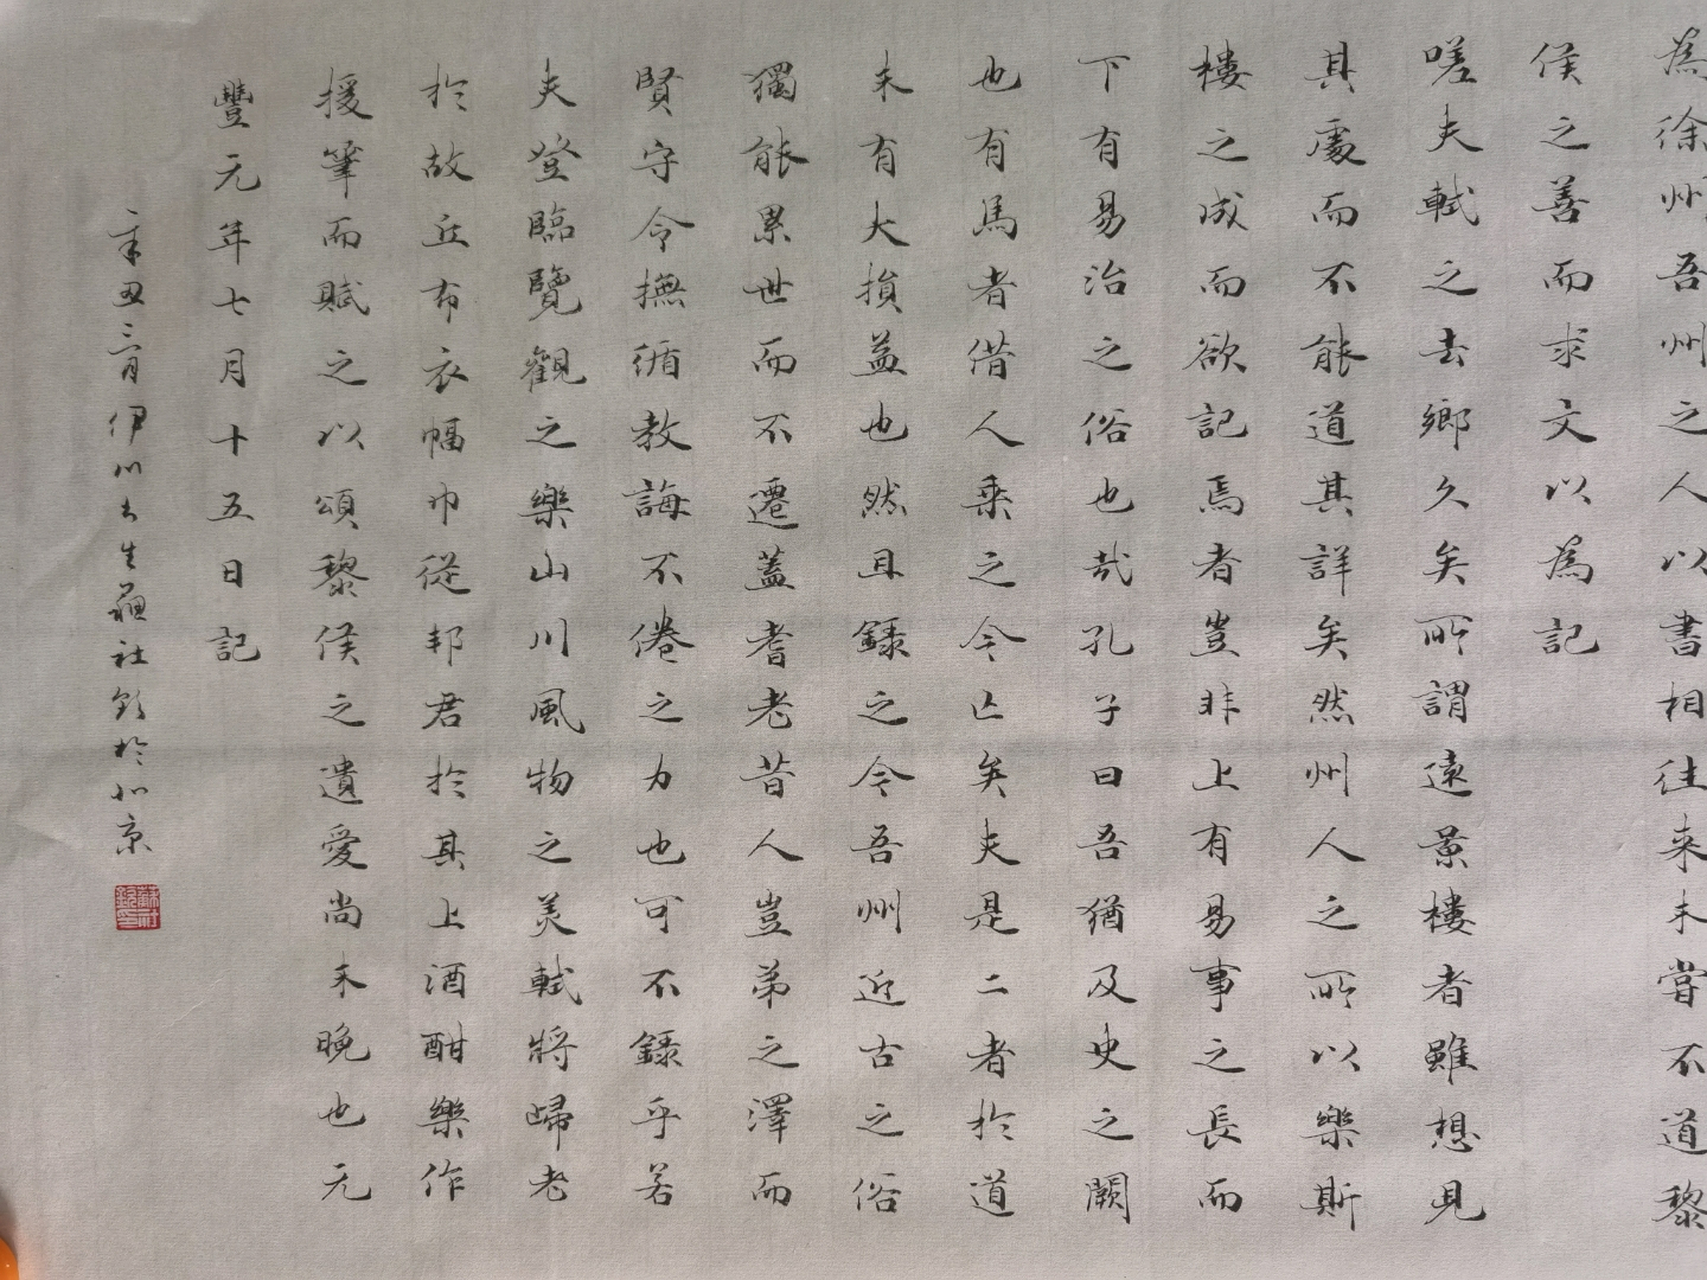 為徐州吾州之人以書相往來未嘗不道黎
侯之善而求文以為記
嗟夫軾之去鄉久矣所謂遠景樓者雖想見
其處而不能道其詳矣然州人之所以樂斯
樓之成而欲記焉者豈非上有易事之長而
下有易治之俗也哉孔子曰吾猶及史之闕
也有馬者借人乘之今亡矣夫是二者於道
未有大損益也然且錄之今吾州近古之俗
獨能累世而不遷蓋耆老昔人豈弟之澤而
賢守令撫循教誨不倦之力也可不錄乎若
夫登臨覽觀之樂山川風物之美軾將歸老
於故丘布衣幅巾從邦君於其上酒酣樂作
援筆而賦之以頌黎侯之遺愛尚未晚也元
豐元年七月十五日記
辛丑三月伊川書生蘇社欽於北京
蘇社欽印